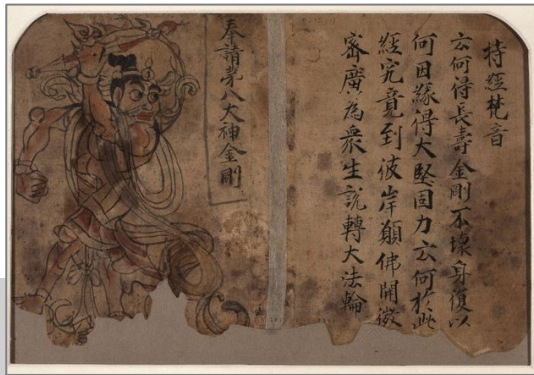 持經梵音
云何得長壽金剛不壞身復以
何因緣得大堅固力云何於此
經究竟到彼岸願佛開微
密廣為衆生說轉大法輪
奉請第八大神金剛